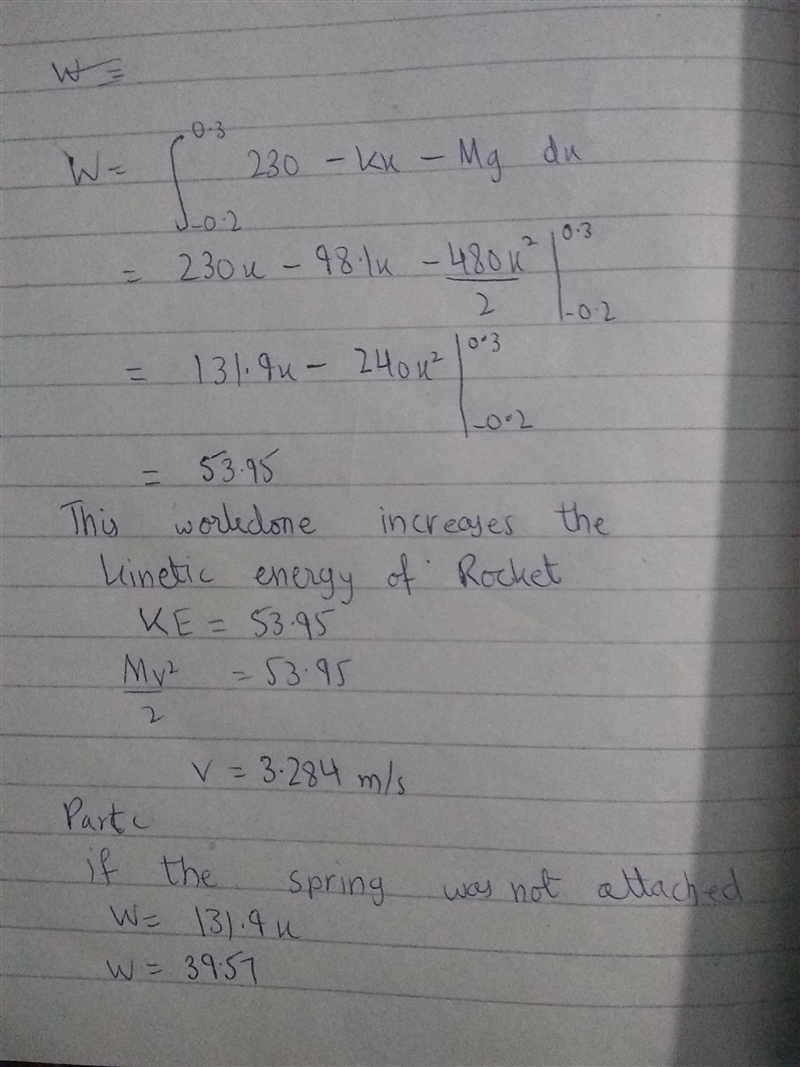 W=
W= ∫_{-0.2}^{0.3} 230 - Kx - Mg dx
= 230x - 98.1x - 480x²/2 |_{-0.2}^{0.3}
= 131.9x - 240x² |_{-0.2}^{0.3}
= 53.95
This workdone increases the
kinetic energy of Rocket
KE = 53.95
Mv²/2 = 53.95
V = 3.284 m/s
Part c
if the spring was not attached
W= 131.9x
W= 39.57